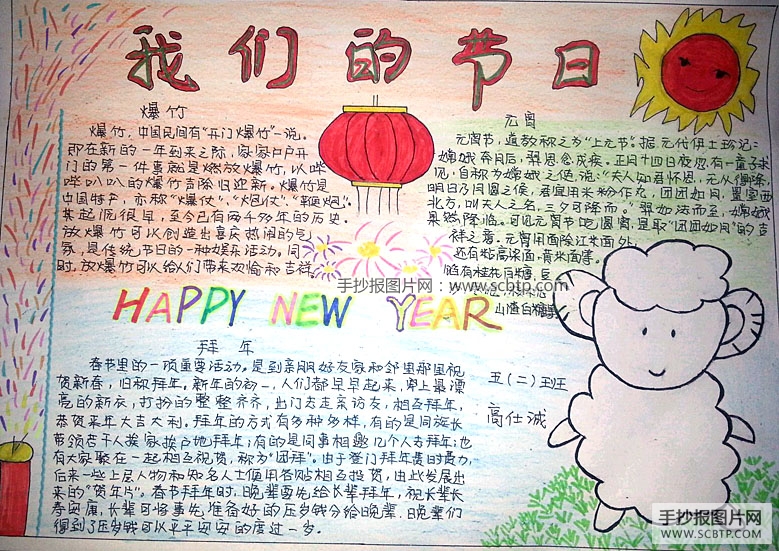 我们的节日
爆竹
爆竹,中国民间有“开门爆竹”一说。
即在新的一年到来之际,家家户户开
门的第一件事就是燃放爆竹,以哔
哔叭叭的爆竹声除旧迎新。爆竹是
中国特产,亦称“爆仗”、“炮仗”、“鞭炮”。
其起源很早,至今已有两千多年的历史。
放爆竹可以创造出喜庆热闹的气
氛,是传统节日的一种娱乐活动。同
时,放爆竹可以给人们带来欢愉和吉祥。
元宵
元宵节,道教称之为“上元节”。据元代伊士珍记:
嫦娥奔月后,羿思念成疾。正月十四日夜忽有一童子求
见,自称为嫦娥之使,说:“夫人知君怀思,无从得降,
明日乃月圆之候,君宜用米粉作丸,团团如月,置室西
北方,叫夫人之名,三夕可降而。”羿如法而至,嫦娥
果然降临。可见元宵节吃团宵,是取“团团如月”的吉
祥之意。元宵用面除江米面外,
还有粘高粱面、黄米面等。
馅有桂花白糖、豆
山渣白糖等
手抄报图片网:www.scbtp.com
HAPPY NEW YEAR
拜年
春节里的一项重要活动。是到亲朋好友家和邻里那里祝
贺新春,旧称拜年。新年的初一,人们都早早起来,穿上最漂
亮的新衣,打扮的整整齐齐,出门去走亲访友,相互拜年,
恭贺来年大吉大利。拜年的方式有多种多样,有的是同族长
带领若干人挨家挨户地拜年;有的是同事相邀几个人去拜年;也
有大家聚在一起相互祝贺,称为“团拜”。由于登门拜年费时费力,
后来一些上层人物和知名人士便用各贴相互投贺,由此发展出
来的“贺年片”。春节拜年时,晚辈要先给长辈拜年,祝长辈长
寿安康,长辈可将事先准备好的压岁钱分给晚辈,晚辈们
得到了压岁钱可以平平安安的度过一岁。
五(二)班
高仕诚
手抄报图片网
WWW.SCBTP.COM